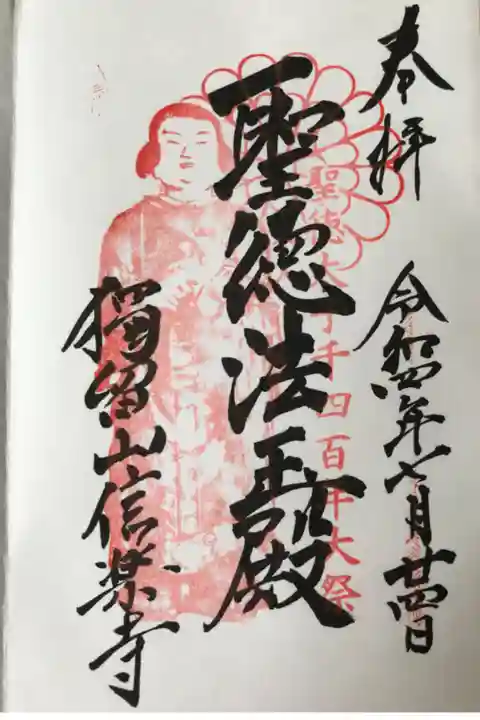 奉拝
令和四年七月廿四日
聖徳太子千四百年大祭
聖徳法王殿
獨留山信楽寺